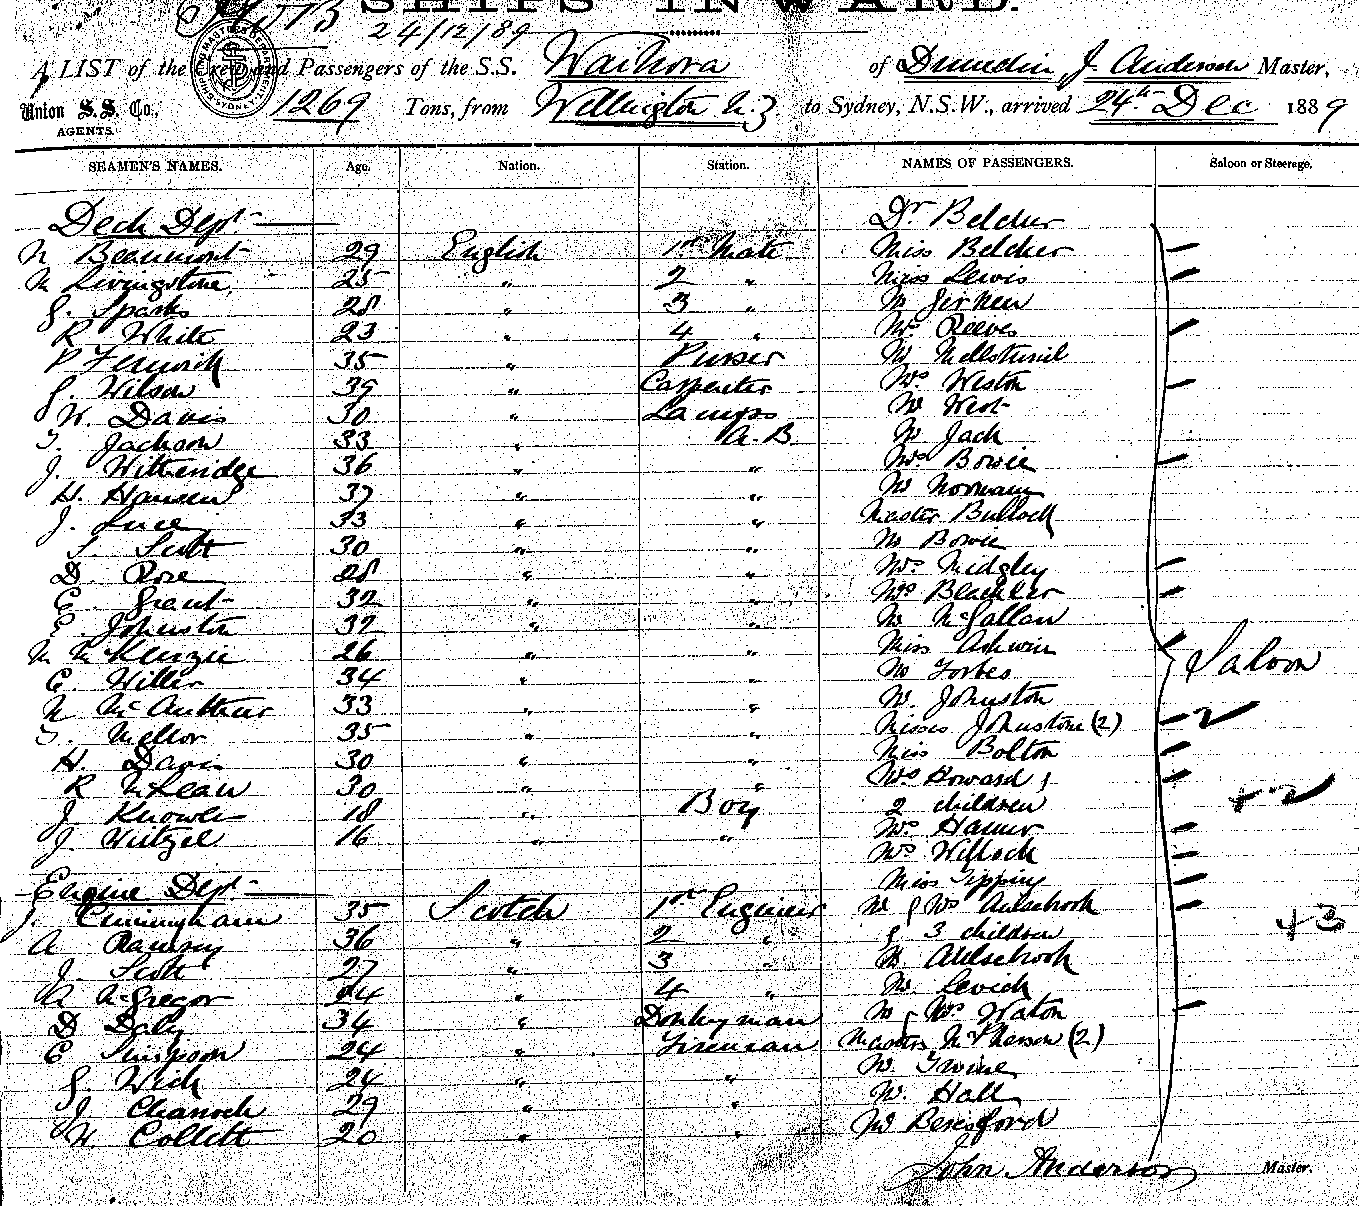 SHIPS INWARD.
24/12/89
A LIST of the Crew and Passengers of the S.S. Waihora of Dunedin, J. Anderson Master,
Union S.S. Co., AGENTS. 1269 Tons, from Wellington N.Z to Sydney, N.S.W., arrived 24th Dec 1889
SEAMEN'S NAMES. Age. Nation. Station. NAMES OF PASSENGERS. Saloon or Steerage.
Deck Dept Dr Belcher
N Beaumont 29 English 1st Mate Miss Belcher
M Livingstone 25 " 2 " Miss Lewis
G. Sparks 28 " 3 " Mr
R White 23 " 4 " Mrs Reeves
P Fenwick 35 " Purser Mr
G. Wilson 39 " Carpenter Mrs Weston
W. Davis 30 " Lamps Mr West
T. Jackson 33 " A.B Mr Jack
J. Witheridge 36 " " Mrs Bowie
H. Hansen 37 " " Mr Norman
J. Luce 33 " " Master Bullock
T. Scott 30 " " Mr Bowie
D. Rose 28 " " Mrs Midgley
E. Grant 32 " " Mrs
E. Johnston 32 " " Mr McCallan
M McKenzie 26 " " Miss Ashwin
E. Miller 34 " " Mr Forbes Saloon
N McArthur 33 " " Mr. Johnston
T. Mellor 35 " " Misses Johnstone (2) 2
H. Davis 30 " " Miss Bolton
R McLean 30 " " Mrs Howard &
J Knowles 18 " Boy 2 children +2
J. Wetzel 16 " " Mrs Hamer
Mrs Willock
Engine Dept Miss Tipping
J. Cunningham 35 Scotch 1st Engineer Mr & Mrs Aulsebrook
A Ramsay 36 " 2 " & 3 children +3
J. Scott 27 " 3 " Mr Aulsebrook
A McGregor 24 " 4 " Mr.
D Daly 34 " Donkeyman Mr & Mrs Waton
E Simpson 24 " Fireman Masters McPherson (2)
G. Wick 24 " " Mr. Irvine
J Charnock 29 " " Mr. Hall
W Collett 20 " " Mr Beresford
John Anderson Master.